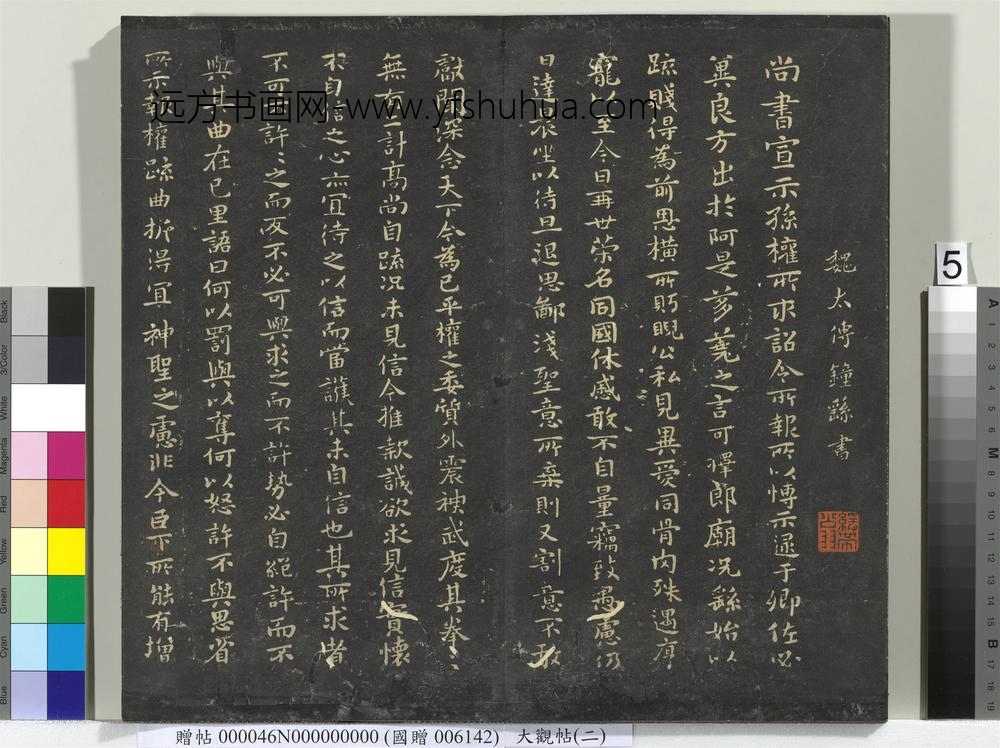 魏太傅鍾繇書
尚書宣示孫權所求詔令所報所以博示逮于卿佐必
冀良方出於阿是芻蕘之言可擇郎廟況繇始以
疏賤得為前恩橫所盱睨公私見異愛同骨肉殊遇厚
寵以至今日再世榮名同國休慼敢不自量竊致愚慮仍
日達晨坐以待旦退思鄙淺聖意所棄則又割意不敢
獻聞深念天下今為已平權之委質外震神武度其拳〻
無有二計高尚自疏況未見信今推款誠欲求見信實懷
不自信之心亦宜待之以信而當護其未自信也其所求者
不可不許〻之而反不必可與求之而不許勢必自絕許而不
與其曲在己里語曰何以罰與以奪何以怒許不與思省
所示報權疏曲折得宜神聖之慮非今臣下所能有增
远方书画网-www.yfshuhua.com
5
Black
3/Color
White
Magenta
Red
Yellow
Green
Cyan
Blue
A
1
2
3
4
5
6
M
8
9
10
11
12
13
14
15
B
17
18
19
贈帖 000046N000000000 (國贈 006142) 大觀帖(二)